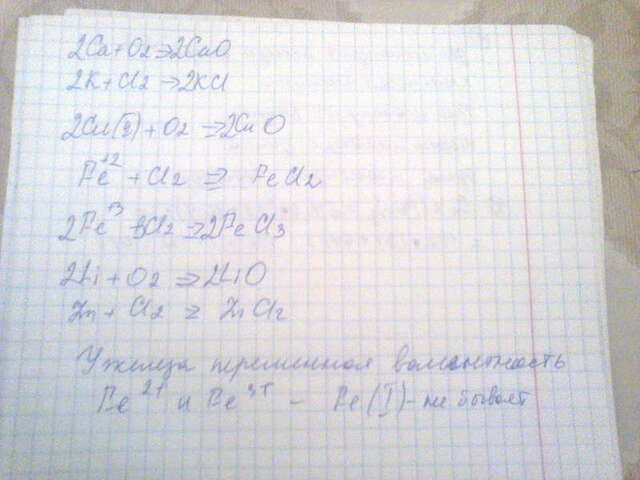 2Ca+O2⇒2CaO
2K+Cl2→2KCl
2Cu(2)+O2→2CuO
Fe+2+Cl2⇒FeCl2
2Fe+3+3Cl2⇒2FeCl3
2Ni+O2⇒NiO
Zn+Cl2⇒ZnCl2
У железа переменная валентность
Fe2+ и Fe3+ - Fe(I)- не бывает